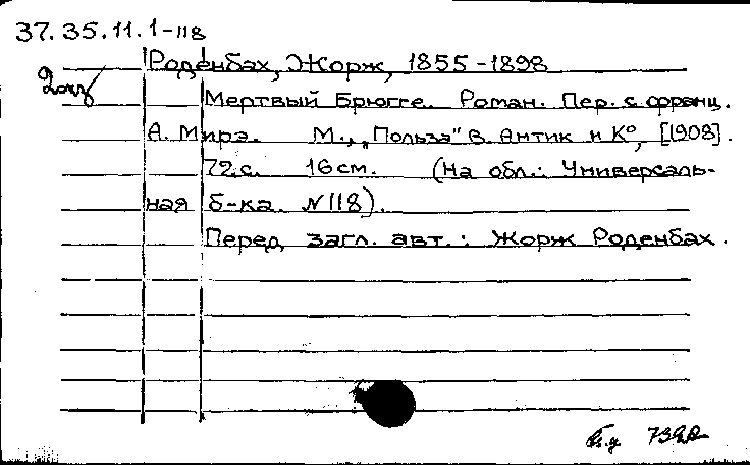 37.35.11.1-118
Роденбах, Жорж, 1855-1898
Мертвый Брюгге. Роман. Пер. с франц.
А. Мирэ. М., „Польза" В. Антик и К°, [1908].
72 с. 16 см. (На обл.: Универсаль-
ная б-ка. N 118).
Перед загл. авт.: Жорж Роденбах.